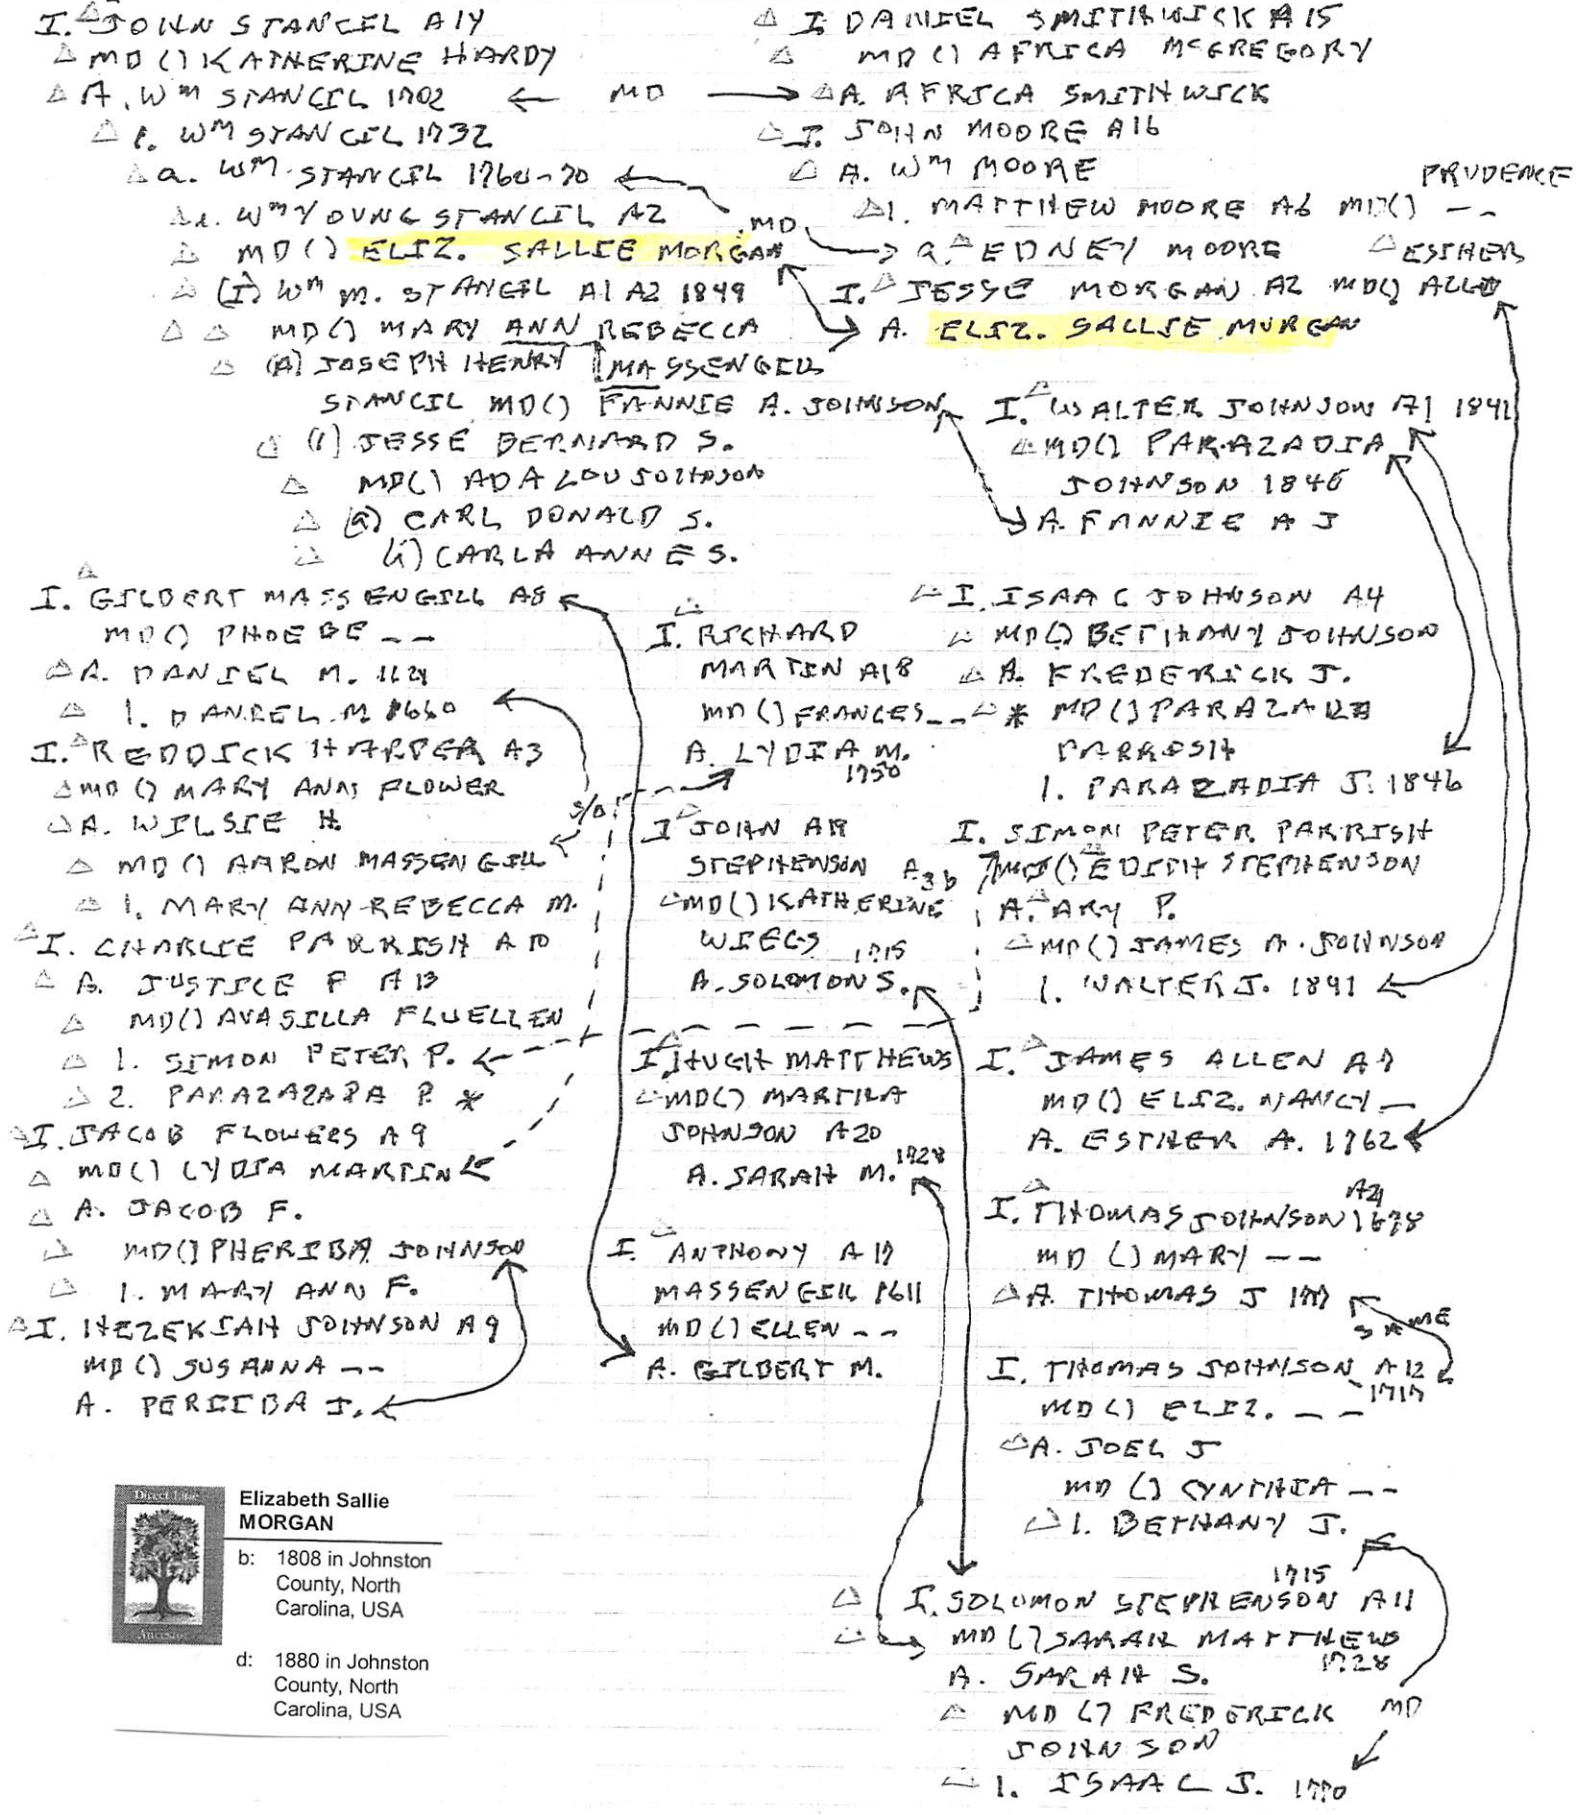 I. JOHN STANCIL A14
MD () KATHERINE HARDY
A. Wm STANCIL 1702 ← MD →
1. Wm STANCIL 1732
a. Wm. STANCIL 1768-70
Wm YOUNG STANCIL A2
MD () ELIZ. SALLIE MORGAN
(I) Wm M. STANCIL A1 A2 1849
MD () MARY ANN REBECCA
MASSENGILL
(A) JOSEPH HENRY
STANCIL MD() FANNIE A. JOHNSON
(1) JESSE BERNARD S.
MD() ADA LOU JOHNSON
(a) CARL DONALD S.
(i) CARLA ANNE S.
I. DANIEL SMITHWICK A15
MD () AFRICA McGREGORY
A. AFRICA SMITHWICK
I. JOHN MOORE A16
A. Wm MOORE
PRUDENCE
1. MATTHEW MOORE A6 MD() --
MD
a. EDNEY MOORE
ESTHER
I. JESSE MORGAN A2 MD()
A. ELIZ. SALLIE MORGAN
I. WALTER JOHNSON A1 1841
MD() PARAZADIA
JOHNSON 1846
A. FANNIE A J
I. GILBERT MASSENGILL A8
MD() PHOEBE --
A. DANIEL M.
1. DANIEL M 1660
I. REDDICK HARPER A3
MD () MARY ANN FLOWER
A. WILSIE H.
MD () AARON MASSENGILL
1. MARY ANN REBECCA M.
I. CHARLIE PARRISH A10
A. JUSTICE P A13
MD() AVASILLA FLUELLEN
1. SIMON PETER P.
2. PARAZAZAPA P. *
I. JACOB FLOWERS A9
MD() LYDIA MARTIN
A. JACOB F.
MD() PHERIBA JOHNSON
1. MARY ANN F.
I. HEZEKIAH JOHNSON A9
MD () SUSANNA --
A. PERIIBA J.
I. RICHARD
MARTIN A18
MD () FRANCES --
A. LYDIA M.
1750
S/O
I JOHN A19
STEPHENSON A3b
MD() KATHERINE
WIEGS
1715
A. SOLOMON S.
I. HUGH MATTHEWS
MD() MARTHA
JOHNSON A20
A. SARAH M. 1728
I. ANTHONY A17
MASSENGILL 1611
MD () ELLEN --
A. GILBERT M.
I. ISAAC JOHNSON A4
MD() BETHANY JOHNSON
A. FREDERICK J.
* MD()
PARRISH
1. PARAZADIA J. 1846
I. SIMON PETER PARRISH
MD () EDITH STEPHENSON
A. ARY P.
MD() JAMES A. JOHNSON
1. WALTER J. 1841
I. JAMES ALLEN A7
MD() ELIZ. NANCY —
A. ESTHER A. 1762
I. THOMAS JOHNSON A21 1678
MD () MARY --
A. THOMAS J 1717
SAME
I. THOMAS JOHNSON A12
1717
MD () ELIZ. --
A. JOEL J
MD () CYNTHIA --
1. BETHANY J.
1715
I. SOLOMON STEPHENSON A11
MD () SARAH MATTHEWS
1728
A. SARAH S.
MD () FREDERICK
JOHNSON
MD
1. ISAAC J. 1770
Direct Line
Ancestor
Elizabeth Sallie
MORGAN
b: 1808 in Johnston
County, North
Carolina, USA
d: 1880 in Johnston
County, North
Carolina, USA